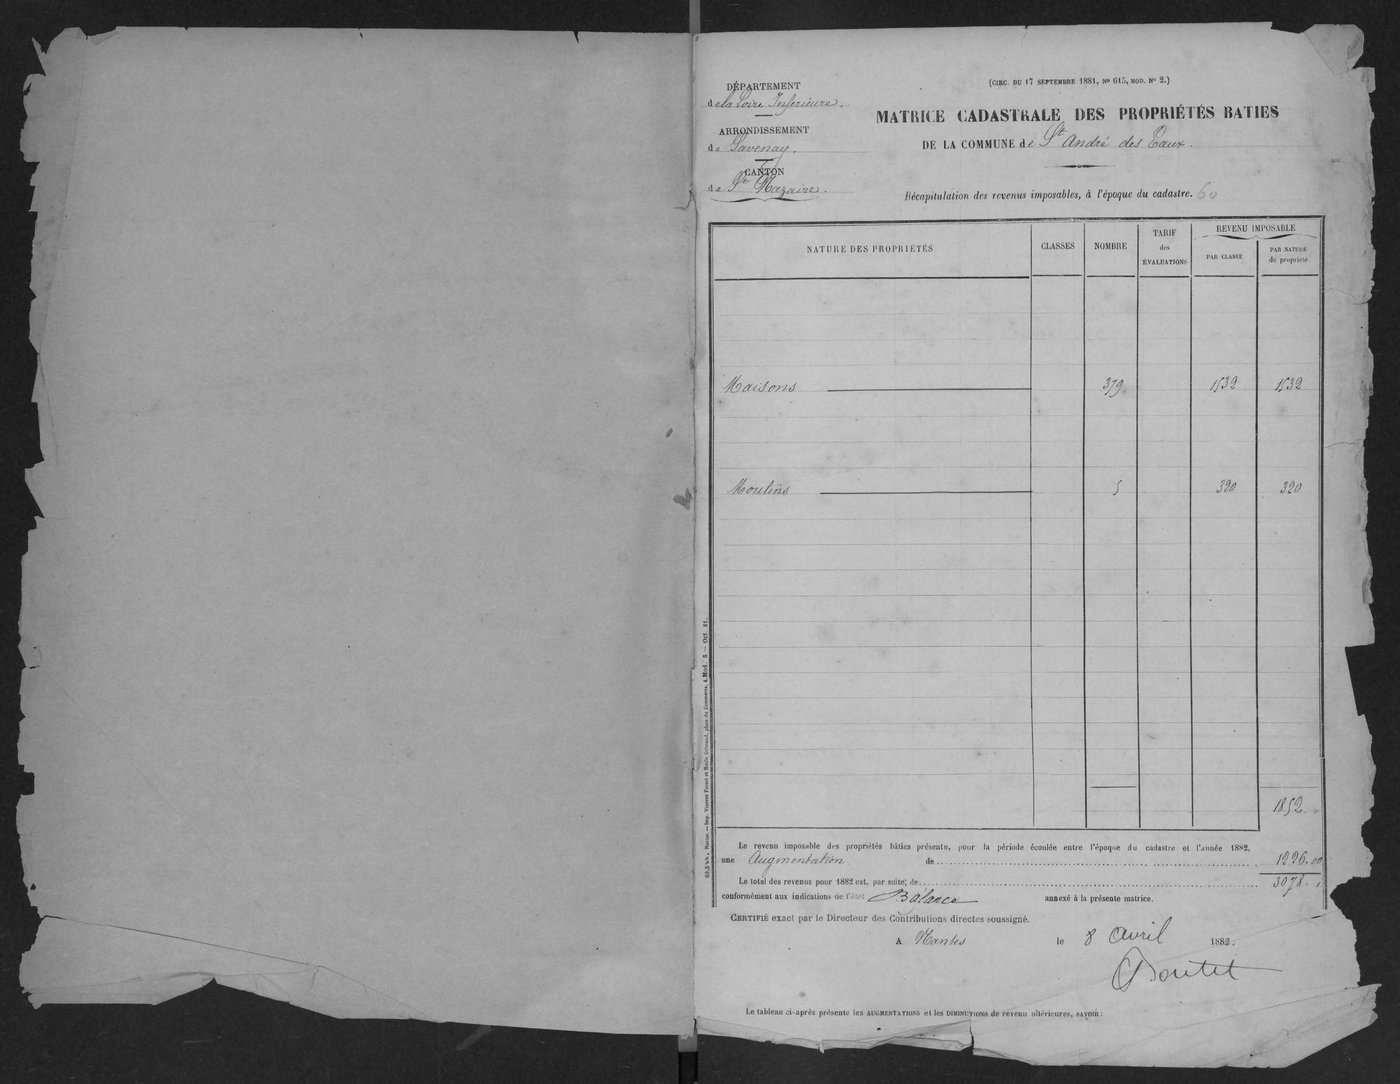 (CIRC. DU 17 SEPTEMBRE 1881, N° 615, MOD. N° 2.)
DÉPARTEMENT
de la Loire Inférieure.
ARRONDISSEMENT
de Savenay.
CANTON
de St Nazaire.
MATRICE CADASTRALE DES PROPRIÉTÉS BATIES
DE LA COMMUNE de St André des Eaux.
Récapitulation des revenus imposables, à l'époque du cadastre.
NATURE DES PROPRIÉTÉS CLASSES NOMBRE TARIF des ÉVALUATIONS REVENU IMPOSABLE PAR CLASSE PAR NATURE de propriété
Maisons 379 1532 1532
Moulins 5 320 320
1852. "
Le revenu imposable des propriétés bâties présente, pour la période écoulée entre l'époque du cadastre et l'année 1882,
une Augmentation de 1226.00
Le total des revenus pour 1882 est, par suite, de 3078. "
conformément aux indications de l'état Balance annexé à la présente matrice.
CERTIFIÉ exact par le Directeur des Contributions directes soussigné.
A Nantes le 8 Avril 1882.
Boutet
Le tableau ci-après présente les AUGMENTATIONS et les DIMINUTIONS de revenu ultérieures, SAVOIR :
Nantes. — Imp. Vincent Forest et Émile Grimaud, place du Commerce, 4. Mod. 3 — Oct. 81.